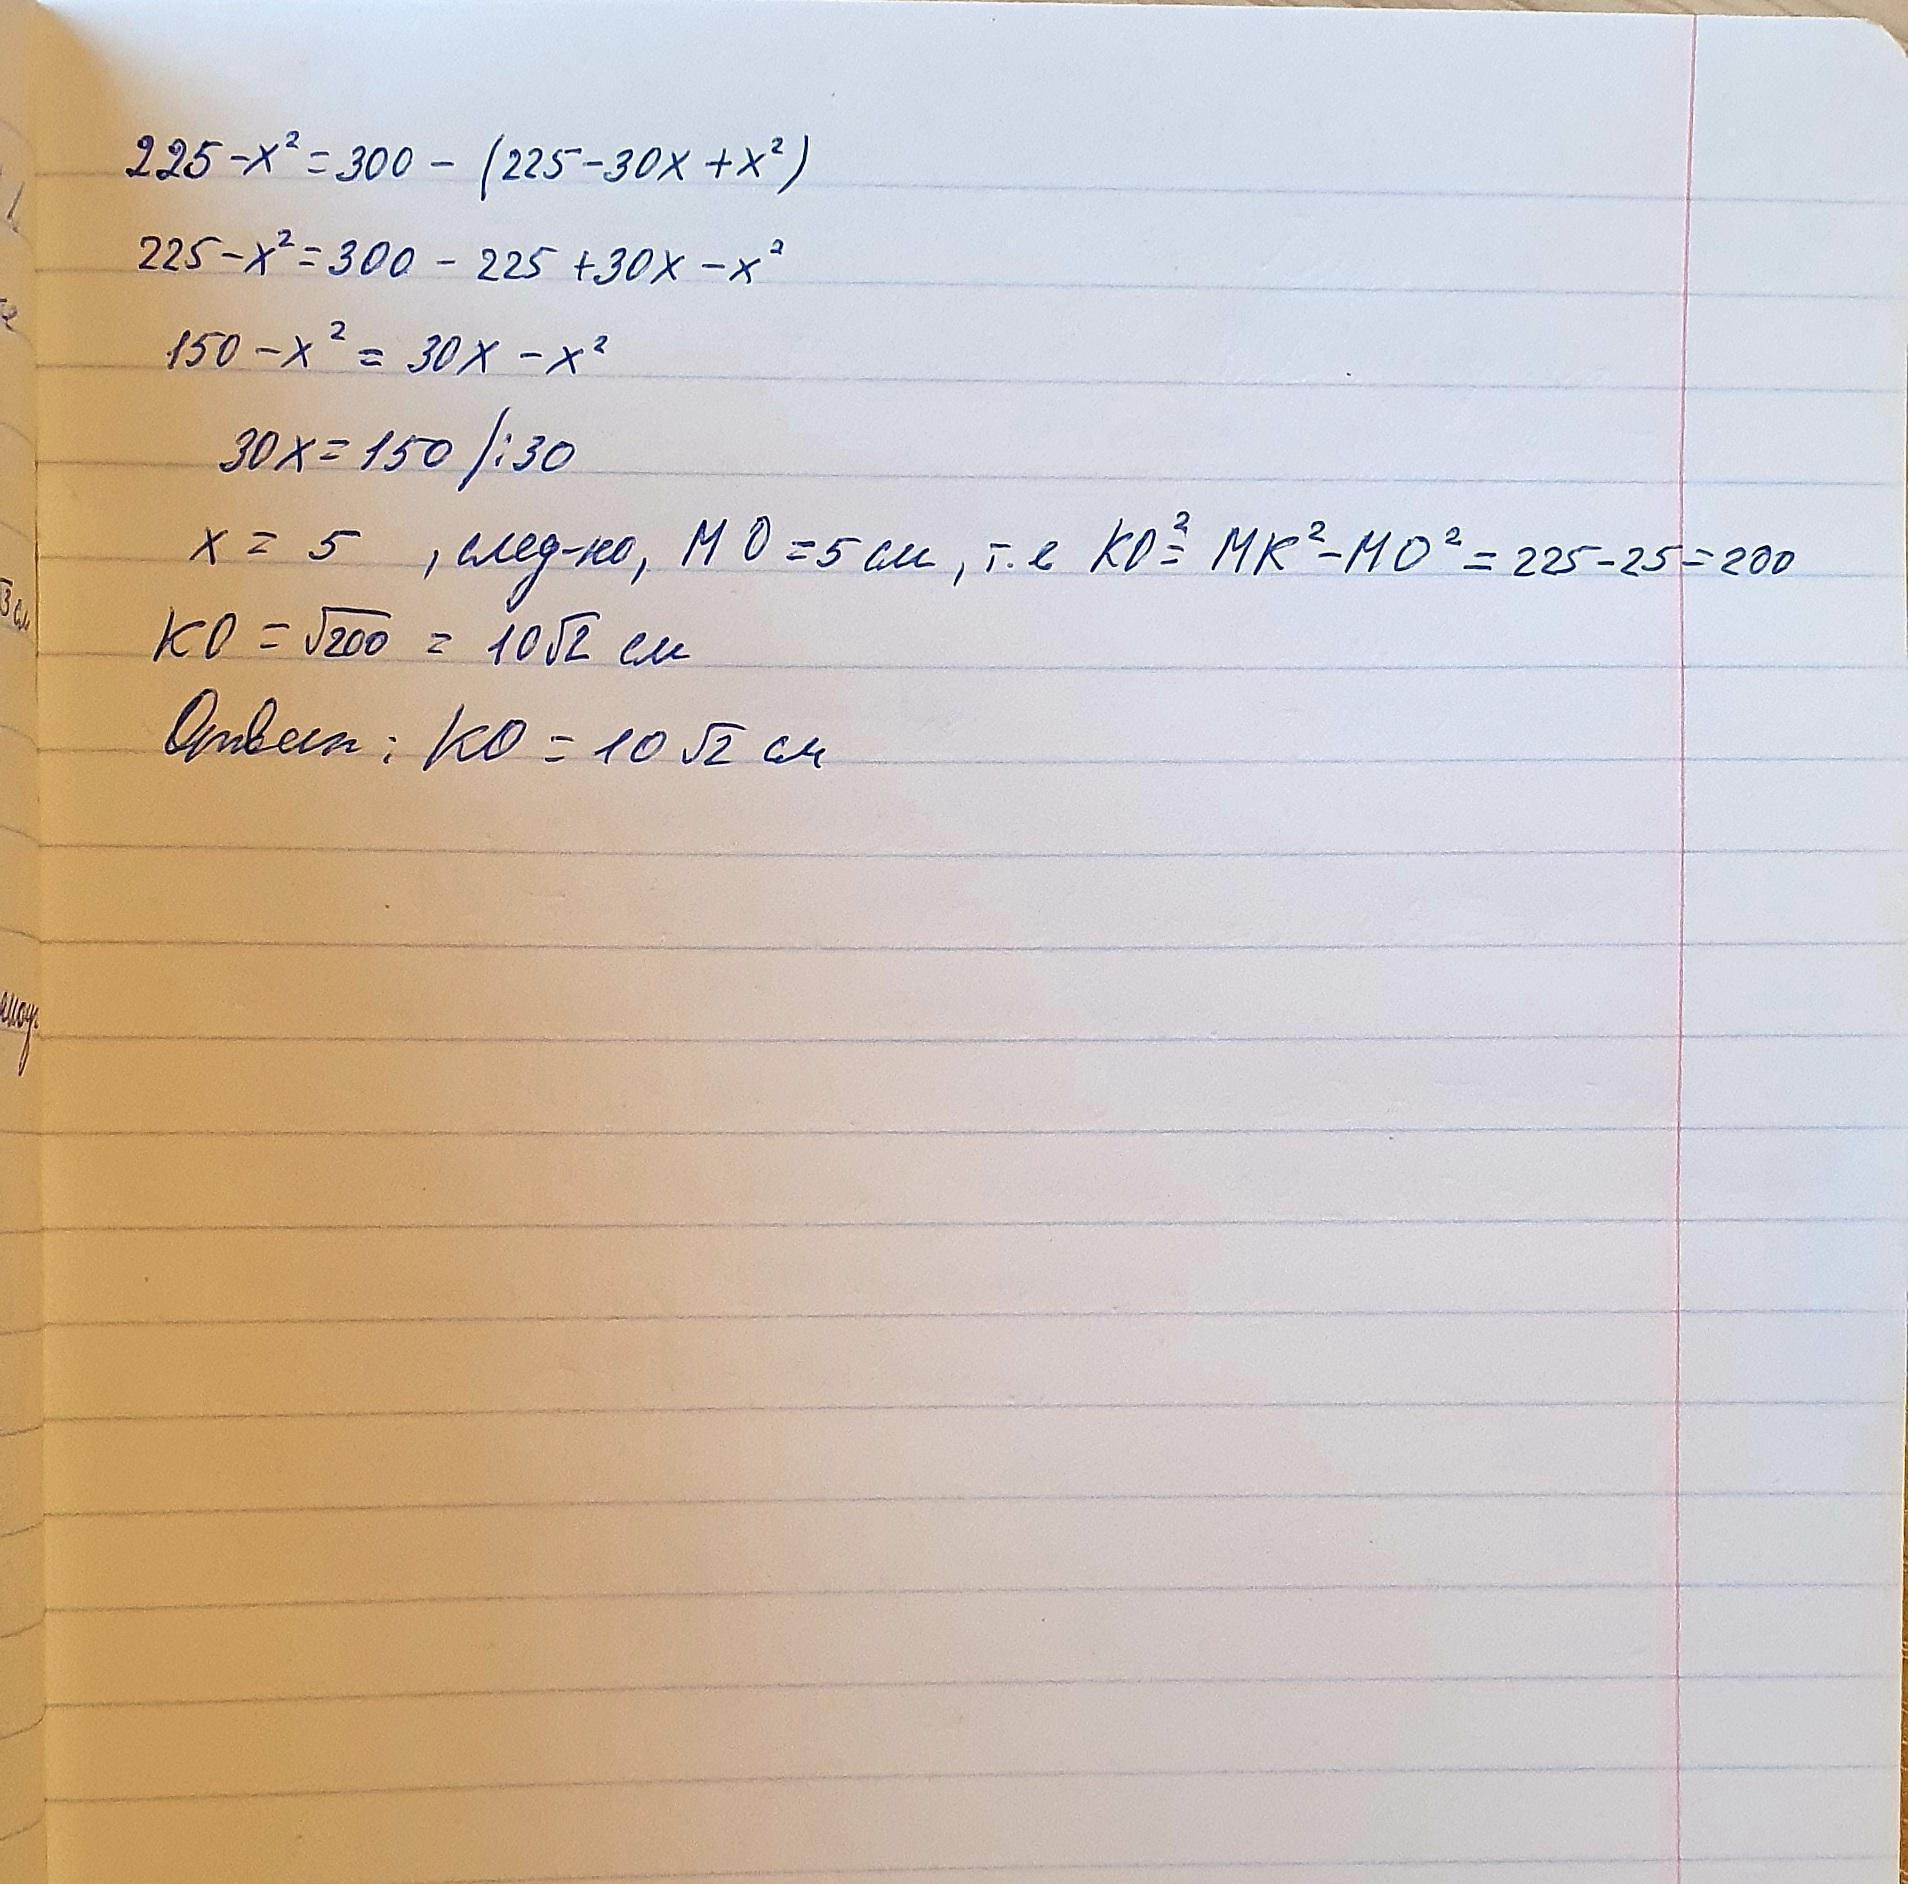 225-x²=300-(225-30x+x²)
225-x²=300-225+30x-x²
150-x²=30x-x²
30x=150 /:30
x=5 , след-но, MO=5см, т.е KO²=MK²-MO²=225-25=200
KO=√200=10√2 см
Ответ: KO=10√2 см